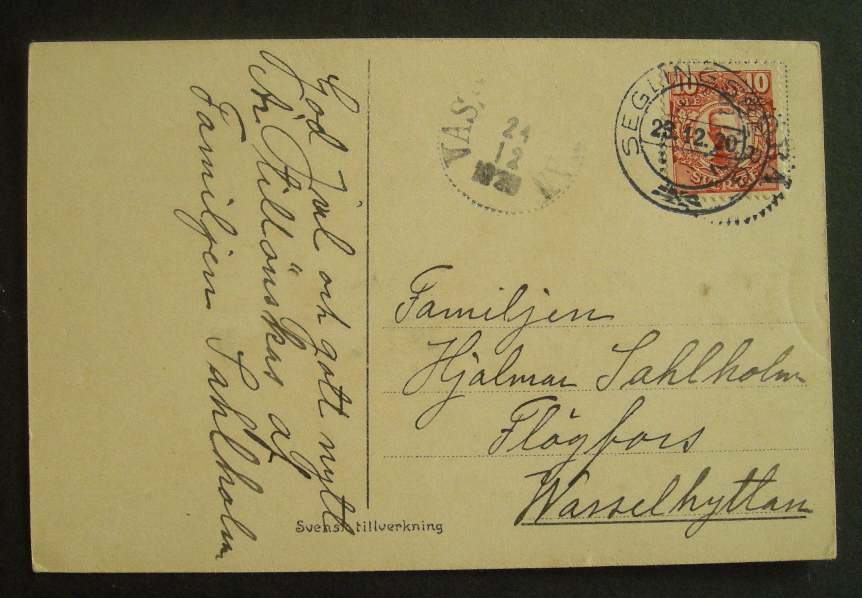 God Jul och gott nytt
År tillönskas af
Familjen Sahlholm
Svensk tillverkning
24
12
1920
10 10
SVERIGE
23.12.20
Familjen
Hjalmar Sahlholm
Flögfors
Wasselhyttan